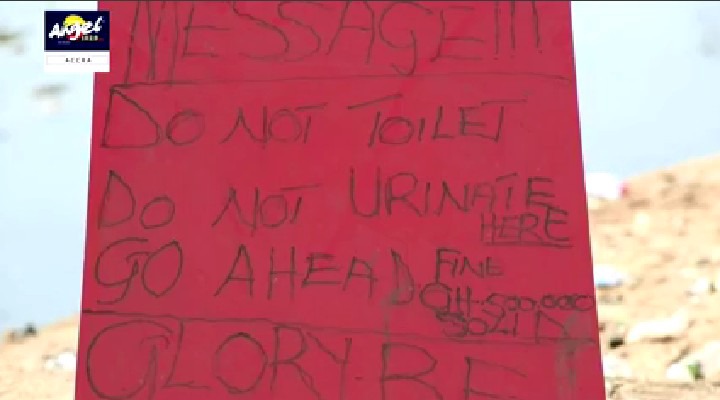 Angel
ACCRA
MESSAGE!!!
DO NOT TOILET
DO NOT URINATE
HERE
GO AHEAD FINE
GH.500.000
GLORY BE